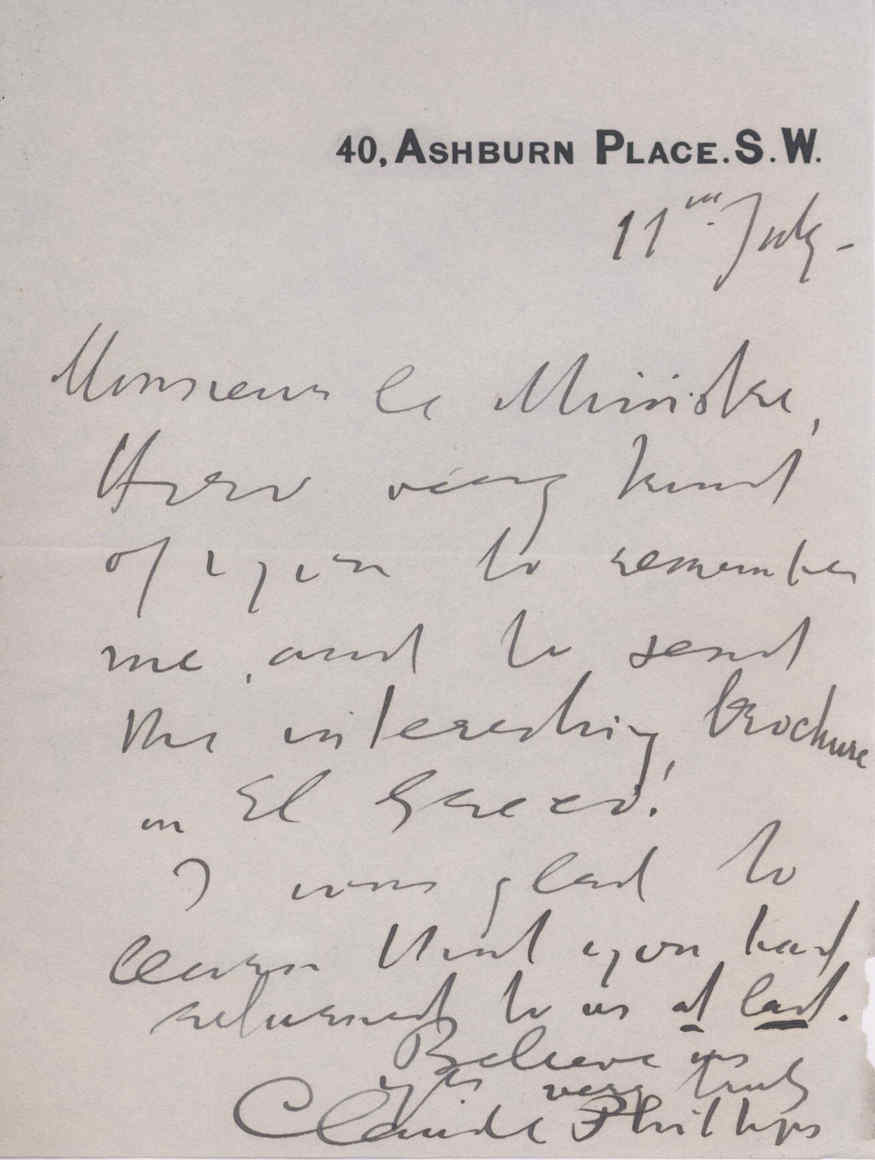 40, ASHBURN PLACE. S. W.
11th July -
Monsieur le Ministre,
How very kind
of you to remember
me, and to send
the interesting brochure
on El Greco!
I was glad to
learn that you had
returned to us at last.
Believe me
yrs very truly
Claude Phillips